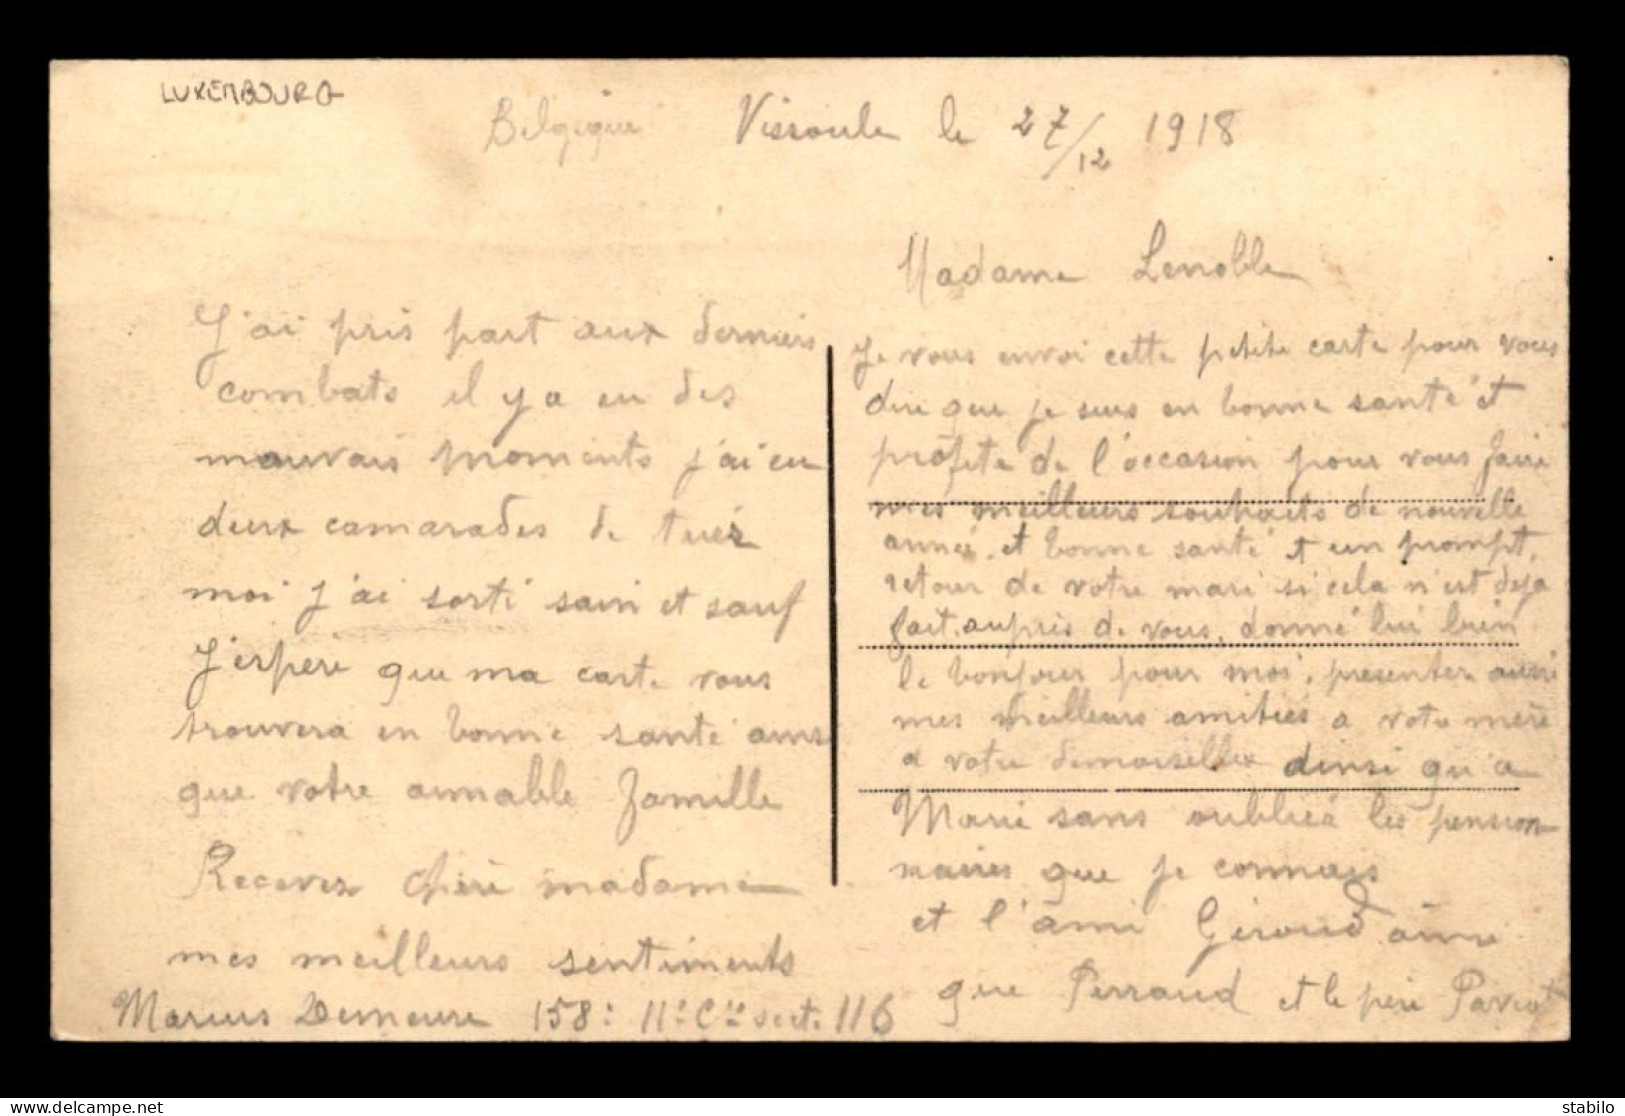 LUXEMBOURG
Belgique Vissoule le 27/12 1918
J'ai pris part aux derniers
combats il y a eu des
mauvais moments j'ai eu
deux camarades de tuéz
moi j'ai sorti sain et sauf
J'espère que ma carte vous
trouvera en bonne santé ains
que votre aimable famille
Recevez chère madame
mes meilleurs sentiments
Marius Demeure 158e 11e Cie sect. 116
Madame Lenoble
Je vous envoi cette petite carte pour vous
dire que je suis en bonne santé et
profite de l'occasion pour vous faire
mes meilleurs souhaits de nouvelle
année, et bonne santé et un prompt,
retour de votre mari si cela n'est déja
fait, auprès de vous, donné lui bien
le bonjour pour moi, presenter aussi
mes meilleurs amitiés a votre mère
a votre demoiselle ainsi qu'a
Marie sans oubliée les pension-
naires que je connais
et l'ami Giroud ainsi
que Perraud et le père Paviot
stabilo